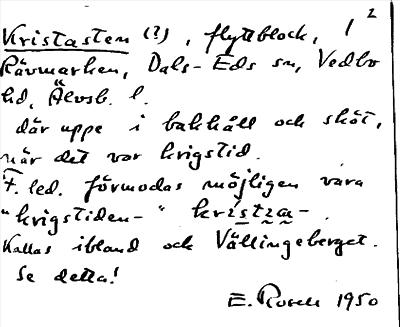 Kristasten (?), flyttblock, 1 2
Rävmarken, Dals-Eds sn, Vedbo
hd, Älvsb. l.
där uppe i bakhåll och sköt,
när det var krigstid.
F. led. förmodas möjligen vara
"krigstiden-" kristia-.
Kallas ibland och Vällingeberget.
Se detta!
E. 1950